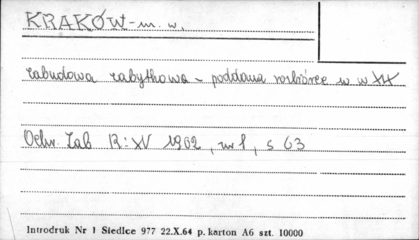 KRAKÓW - m. w.
zabudowa zabytkowa - poddana rozbiórce w w XX
Ochr. Zab R: XV 1962, nr 1, s 63
Introdruk Nr 1 Siedlce 977 22.X.64 p. karton A6 szt. 10000